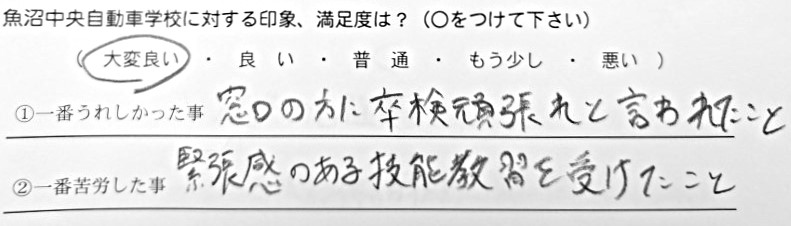 魚沼中央自動車学校に対する印象、満足度は？（〇をつけて下さい）
（ 大変良い ・ 良 い ・ 普 通 ・ もう少し ・ 悪い ）
①一番うれしかった事 窓口の方に卒検頑張れと言われたこと
②一番苦労した事 緊張感のある技能教習を受けたこと